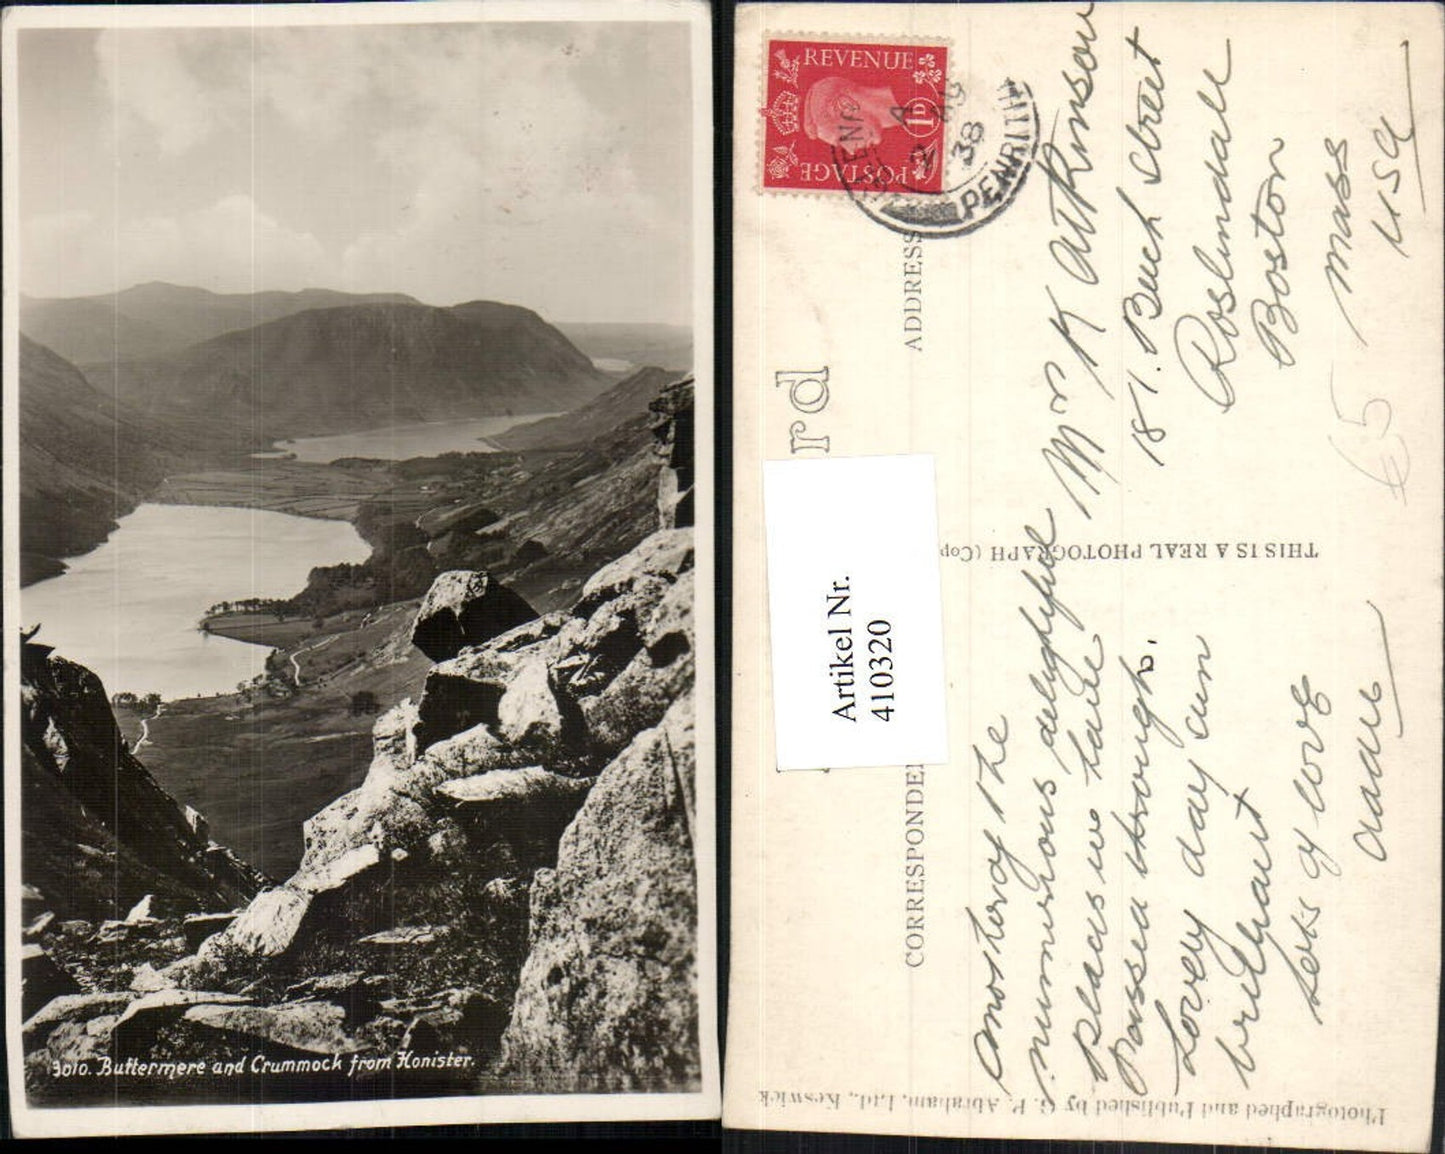 3010. Buttermere and Crummock from Honister.
REVENUE
1D
POSTAGE
PENRITH
2
38
ADDRESS
rd
Artikel Nr.
410320
CORRESPONDEN
THIS IS A REAL PHOTOGRAPH (Cop
Photographed and Published by G. P. Abraham, Ltd., Keswick
Another of the
numerous delightful
places we have
passed through.
Lovely day sun
brilliant
Lots of love
Mrs K Atkinson
181. Beech Street
Roslindale
Boston
Mass
USA
€5